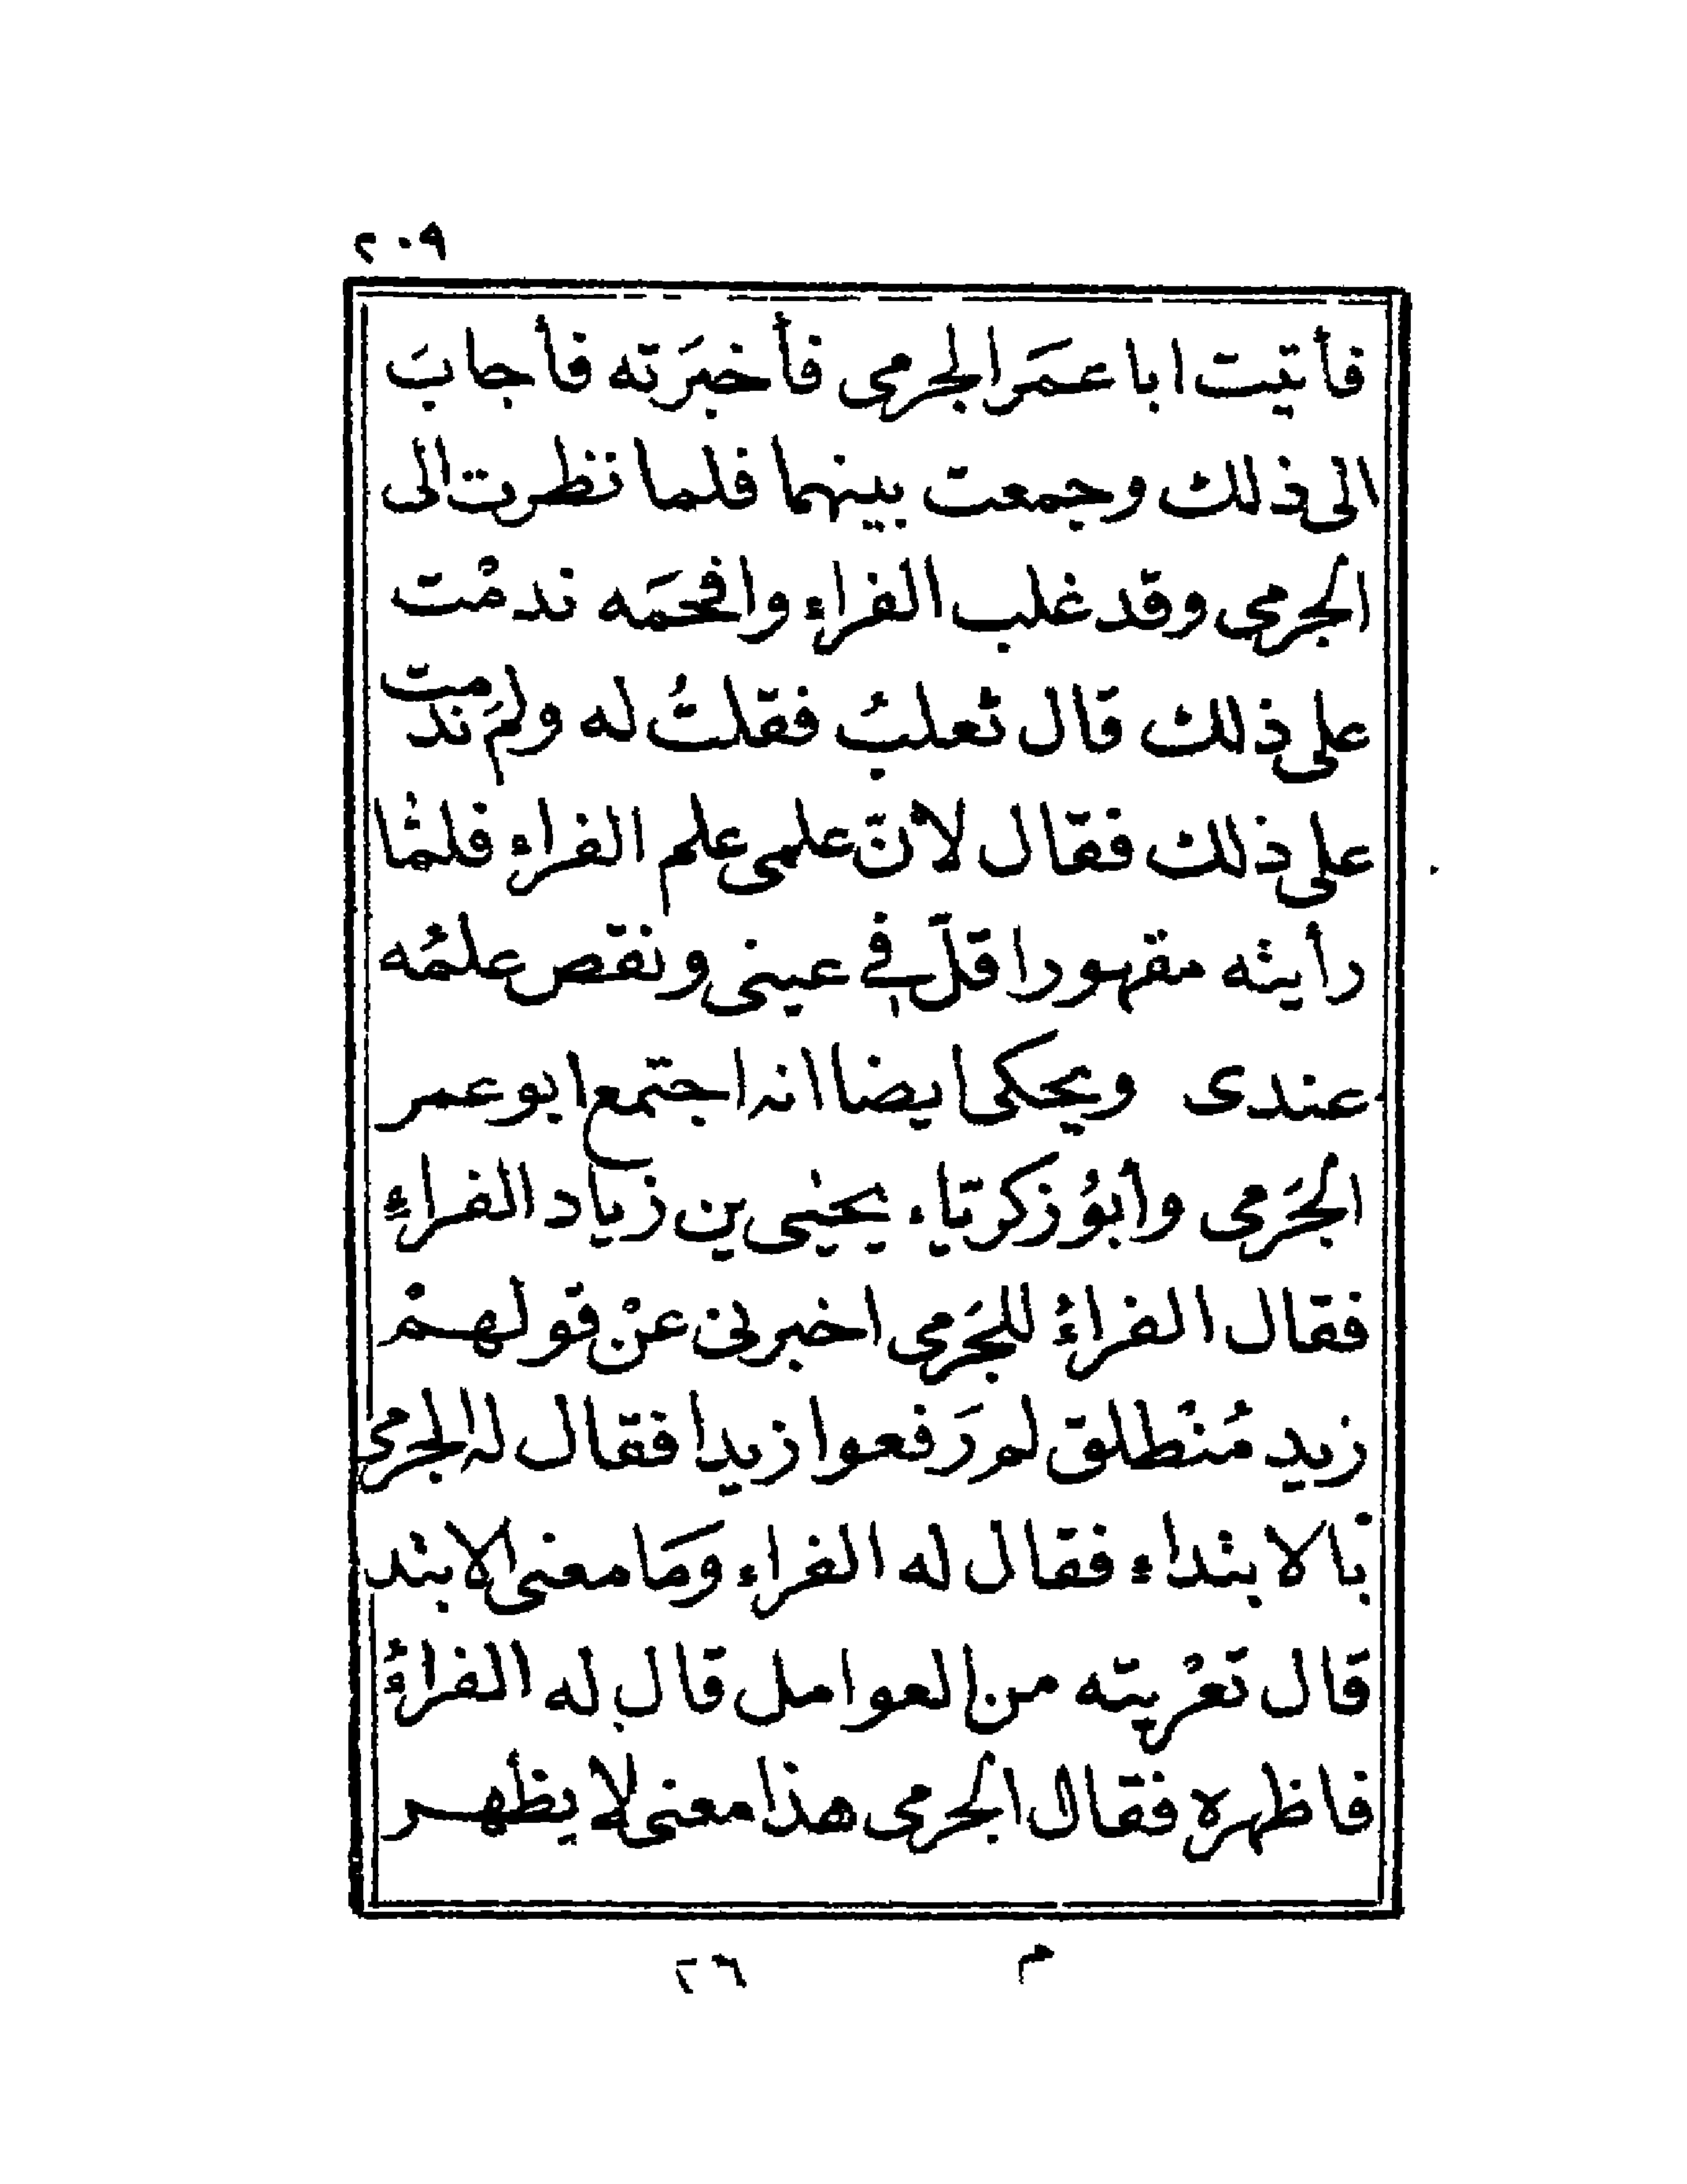 ٢٠٩
فأتيت ابا عمَر الجرمى فأخبَرته فأجابَ
الى ذلك وجمعت بينهما فلما نظرت الى
الجرمى وقد غلب الفراء وافحمَه ندمْت
على ذلك قال ثعلبُ فقلتُ له ولمَ ندمت
على ذلك فقال لأنّ علمى علم الفراء فلمّا
رأيته مقهورا قلّ في عينى ونقص علمُه
عندى ويحكى ايضا انه اجتمع ابو عمر
الجَرمى وأبوُ زكريّاء يحيٰى بن زياد الفراءِ
فقال الفراءُ للجَرمى اخبرنى عنْ قولهمْ
زيد مُنْطلق لم رَفعوا زيدا فقال له الجرمى
بالابتداء فقال له الفراء ومَا معنى الابتد
قال تعْريته من العوامل قال له الفراءُ
فاظهره فقال الجرمى هذا معنى لا يظهر
م ٢٦